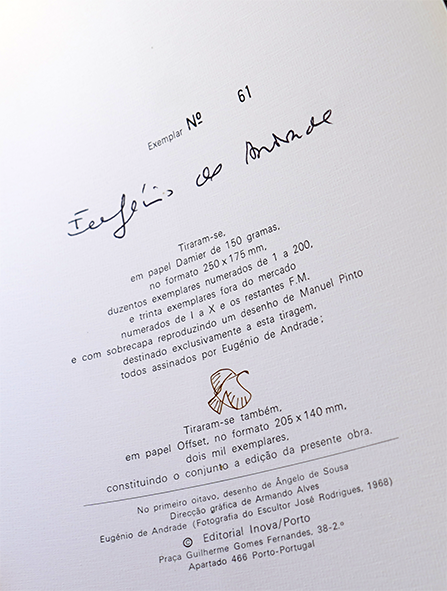 Exemplar Nº 61
Eugénio de Andrade
Tiraram-se,
em papel Damier de 150 gramas,
no formato 250 x 175 mm,
duzentos exemplares numerados de 1 a 200,
e trinta exemplares fora do mercado
numerados de I a X e os restantes F.M.
e com sobrecapa reproduzindo um desenho de Manuel Pinto
destinado exclusivamente a esta tiragem,
todos assinados por Eugénio de Andrade;
Tiraram-se também,
em papel Offset, no formato 205 x 140 mm,
dois mil exemplares,
constituindo o conjunto a edição da presente obra.
No primeiro oitavo, desenho de Ângelo de Sousa
Direcção gráfica de Armando Alves
Eugénio de Andrade (Fotografia do Escultor José Rodrigues, 1968)
© Editorial Inova/Porto
Praça Guilherme Gomes Fernandes, 38-2.º
Apartado 466 Porto-Portugal